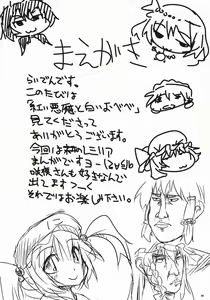 まえがき
らいでんです。
このたびは
「紅い悪魔と白いよーべべ」
見てくださって
ありがとうございます。
今回は
レミリア
まんがですヨー
咲夜さんも好きなんで
出てます
それではお楽しみ下さい。